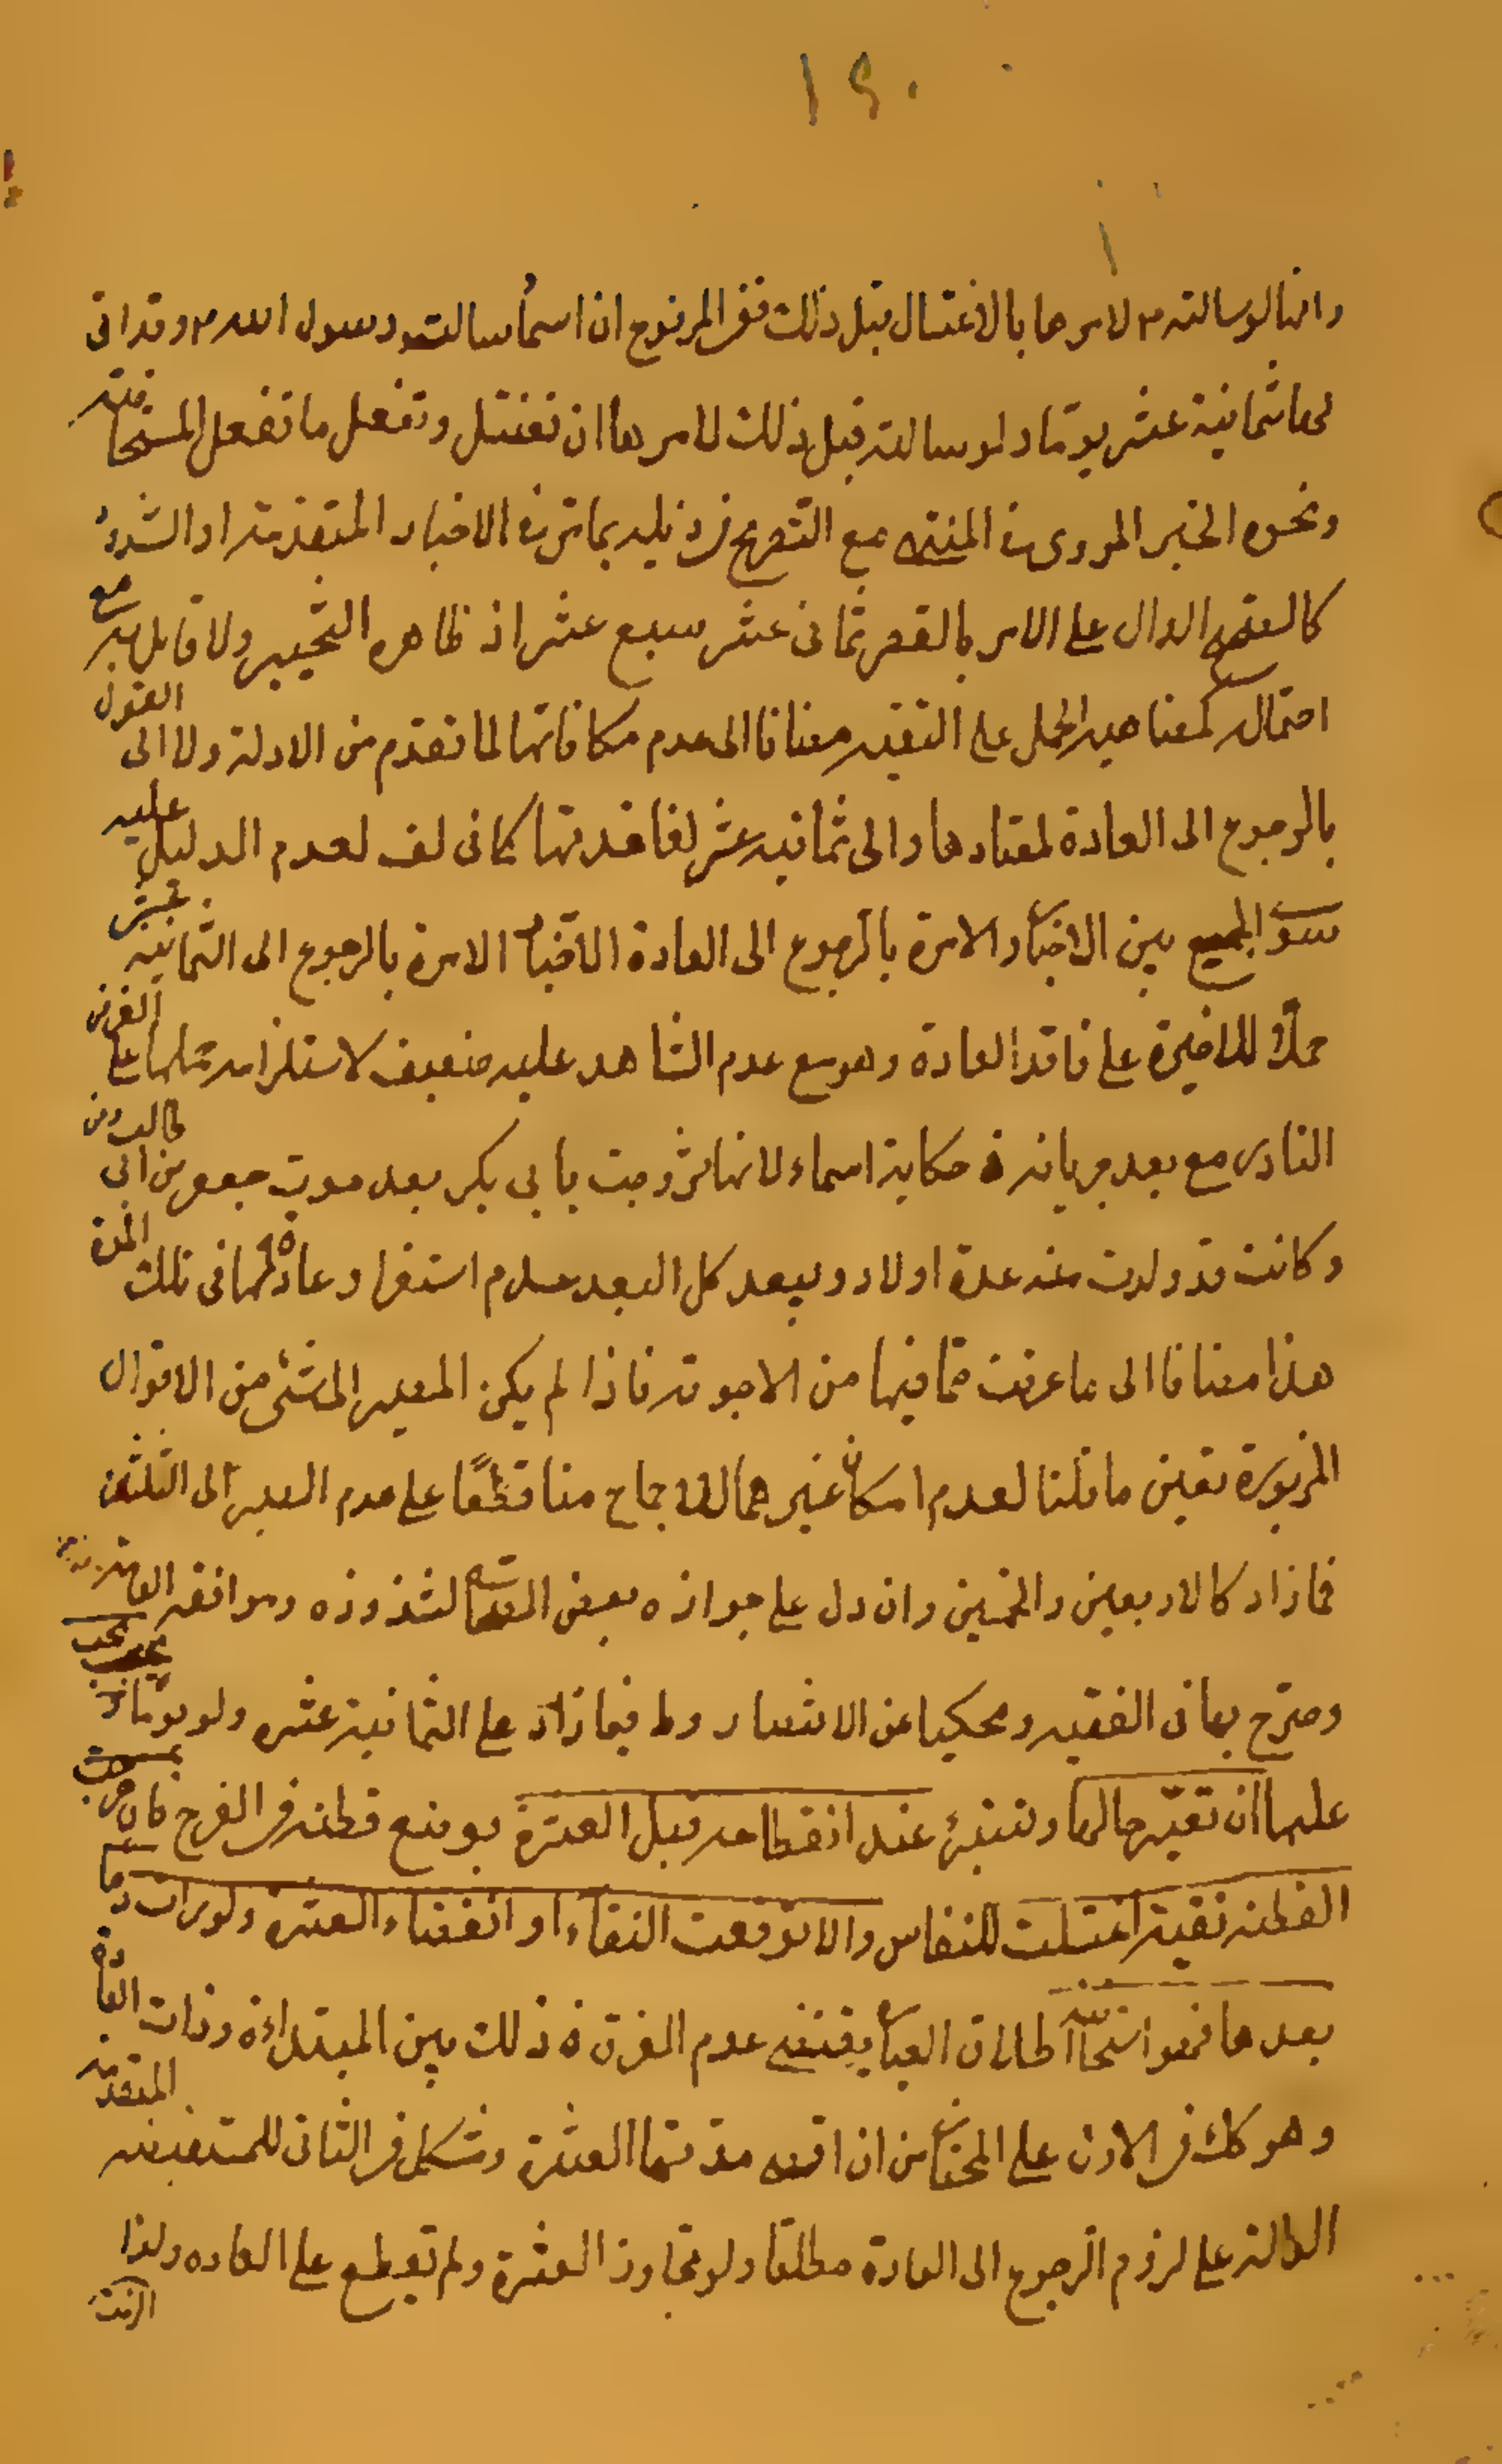 ١٢٠
وانها لو سالته ص لامرها بالاغتسال قبل ذلك ففى المرفوع ان اسماء سالت رسول الله ص وقد اتى
لها ثمانية عشر يوما ولو سالته قبل ذلك لامرها ان تغتسل وتفعل ما تفعل المستحاضة
ونحوه الخبر المروى فى المنتقى مع التصريح فى ذيله بما ترى الاخبار المتقدمة او الشذوذ
كالصحيح الدال على الامر بالقعود ثمانى عشر سبع عشر اذ ظاهره التخيير ولا قائل به مع
احتماله كمعناهيه الحمل على التقيه مضافا الى عدم مكافاتها لما تقدم من الادلة ولا الى القول
بالرجوع الى العادة لمعتادها والى ثمانيه عشر لفاقدتها كما فى لف لعدم الدليل عليه
سوى الجمع بين الاخبار الامرة بالرجوع الى العادة الاخبار الامرة بالرجوع الى الثمانيه عشر
حملا للاخيرة على فاقد العادة وهو مع عدم الشاهد عليه ضعيف لاستلزامه حملها على الفرض
النادر مع بعد جريانه فى حكاية اسماء لانها تزوجت بابى بكر بعد موت جعفر بن ابى طالب رض
وكانت قد ولدت منه عدة اولاد ويبعد كل البعد عدم استقرار عادة لها فى تلك المدة
هذا مضافا الى ما عرفت مما فيها من الاجوبة فاذا لم يكن المصير الى شئ من الاقوال
المزبورة تعين ما قلنا لعدم امكان غيرهما للاجماع منا قطعا على عدم المصير الى الثلثين
فما زاد كالاربعين والخمسين وان دل على جوازه بعض المعتبرة لشذوذه وموافقه العامة
وصرح بها فى الفقيه ومحكيا عن الانتصار وط فيما زاد على الثمانية عشر ولو يوما يجب
عليها ان تعتبر حالها وتستبرئ عند انقطاعه قبل العشرة بوضع قطنه فى الفرج فان خرجت
القطنه نقية اغتسلت للنفاس والا توقعت النقاء او انقضاء العشرة ولو رات دما
بعدها فهو استحاضة اطلاق العبارة يقتضى عدم الفرق فى ذلك بين المبتداة وذات العادة
وهو كك فى الاول على المختار من ان اقصى مدتها العشرة ويشكل فى الثانى للمستفيضه المتقدمة
الدالة على لزوم الرجوع الى العادة مطلقا ولو تجاوز العشرة ولم تقطع على العاده ولذا